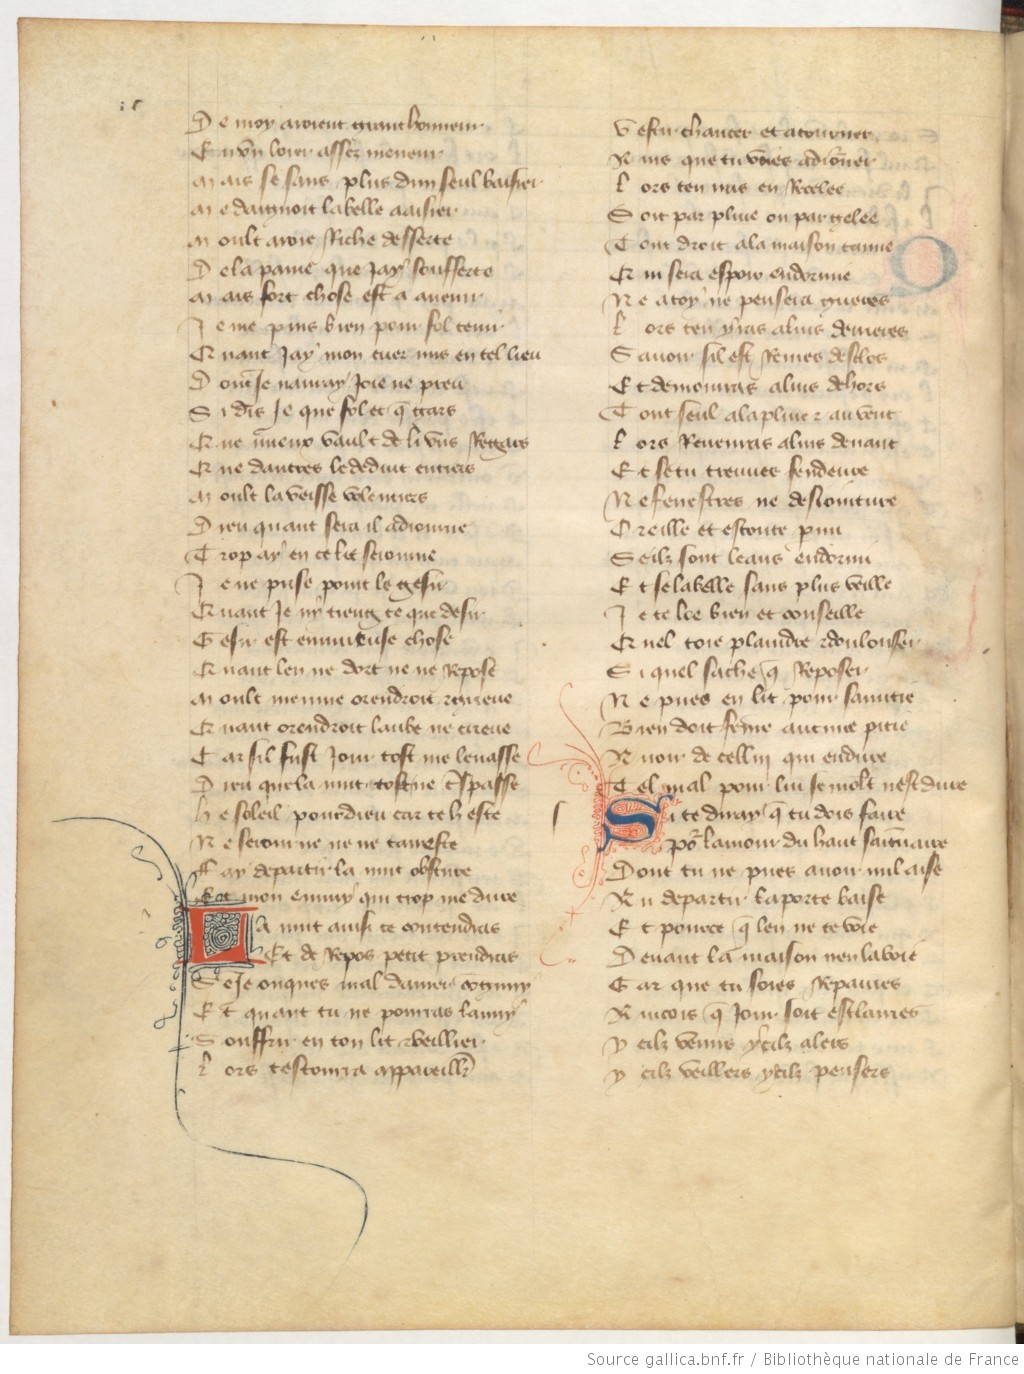 De moy avoient grant honneur
En vn loier assez meneur
Mais se sans plus dun seul baisier
Me daignoit la belle aaisier
Moult avroie Riche desserte
De la paine que Jay soufferte
Mais fort chose est a auenir
Je me puis bien pour fol tenir
Quant Jay mon cuer mis en tel lieu
Dont Je nauray Joie ne preu
Si dis Je que fol et q gars
Que mieux vault de li vns Regars
Que dautres le deduit entiers
Moult la veisse volentiers
Dieu quant sera il adiourne
Trop ay en ce lit seiourne
Je ne prise point le gesir
Quant Je ny tieng ce que desir
Gesir est ennuieuse chose
Quant len ne dort ne ne Repose
Moult mennuie orendroit et grieue
Quant orendroit laube ne crieue
Car sil fust Jour tost me leuasse
Dieu que la nuit tost ne tspasse
He soleil pour dieu car te heste
Ne seiourne ne ne tareste
Fay departir la nuit obscure
Et mon ennuy qui trop me dure
La nuit ainsi te contendras
Et de Repos petit prendras
Se Je onques mal damer congnuy
Et quant tu ne pourras lanuy
Souffrir en ton lit de veillier
Lors testoura appareillr
Vestir chaucer et atourner
Ains que tu voies adiorner
Lors ten iras en Recelee
Soit par pluie ou par gelee
Tout droit a la maison tamie
Qui sera espoir endormie
Ne a toy ne pensera gueres
Lors ten yras a luis derrieres
Sauoir sil est Remes desclos
Et demourras a luis dehors
Tout seul a la pluie et au vent
Lors Reuenras a luis deuant
Et se tu treuues fendeure
Ne fenestres ne desioiture
Oreille et escoute p mi
Seilz sont leans endormi
Et se la belle sans plus veille
Je te loe bien et conseille
Quel toie plaindre et doulouser
Si quel sache q Reposer
Ne pues en lit pour samitie
Bien doit feme aucune pitie
Auoir de cellui qui endure
Tel mal pour lui se molt nest dure
Si te diray q tu dois faire
Por lamour du hault saituaire
Dont tu ne pues auoir nul aise
Au departir la porte baise
Et pource q len ne te voie
Deuant la maison nen la voie
Car que tu soies Repaires
Aincois q Jour soit esclaires
Y cilz venirs y cilz alers
Y cilz veillers y cilz pensers
Source gallica.bnf.fr / Bibliothèque nationale de France